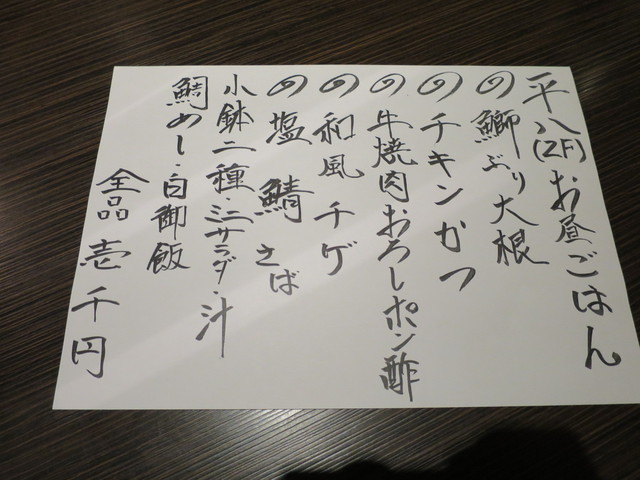 平八(2F)お昼ごはん
の鰤ぶり大根
のチキンかつ
の牛焼肉おろしポン酢
の和風チゲ
の塩鯖さば
小鉢二種・ミニサラダ・汁
鯛めし・白御飯
全品壱千円